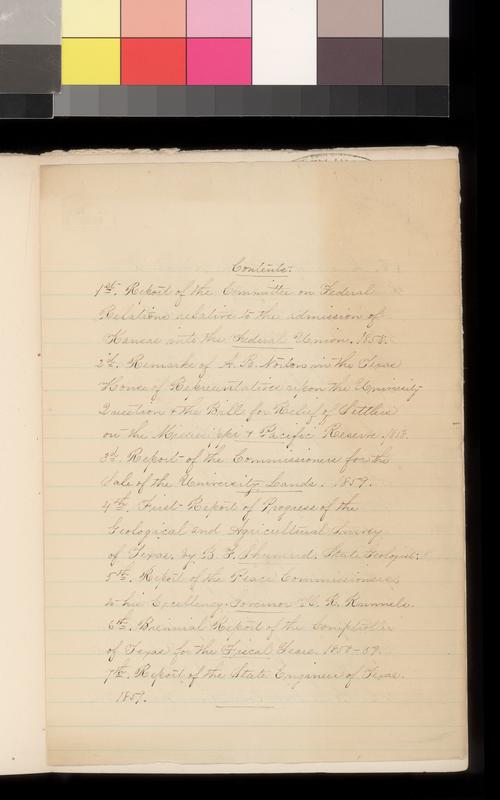 Contents.
1st. Report of the Committee on Federal
Relations relative to the admission of
Kansas into the Federal Union. 1858.
2d. Remarks of A. B. Norton in the Texas
House of Representatives upon the University
Question & the Bill for Relief of Settlers
on the Mississippi & Pacific Reserve.
3d. Report of the Commissioners for the
Sale of the University Lands. 1859.
4th. First Report of Progress of the
Geological and Agricultural Survey
of Texas. by B. F. Shumard. State Geologist.
5th. Report of the Peace Commissioners
to his Excellency Governor H. R. Runnels.
6th. Biennial Report of the Comptroller
of Texas for the Fiscal Years. 1858-59.
7th. Report of the State Engineer of Texas.
1859.